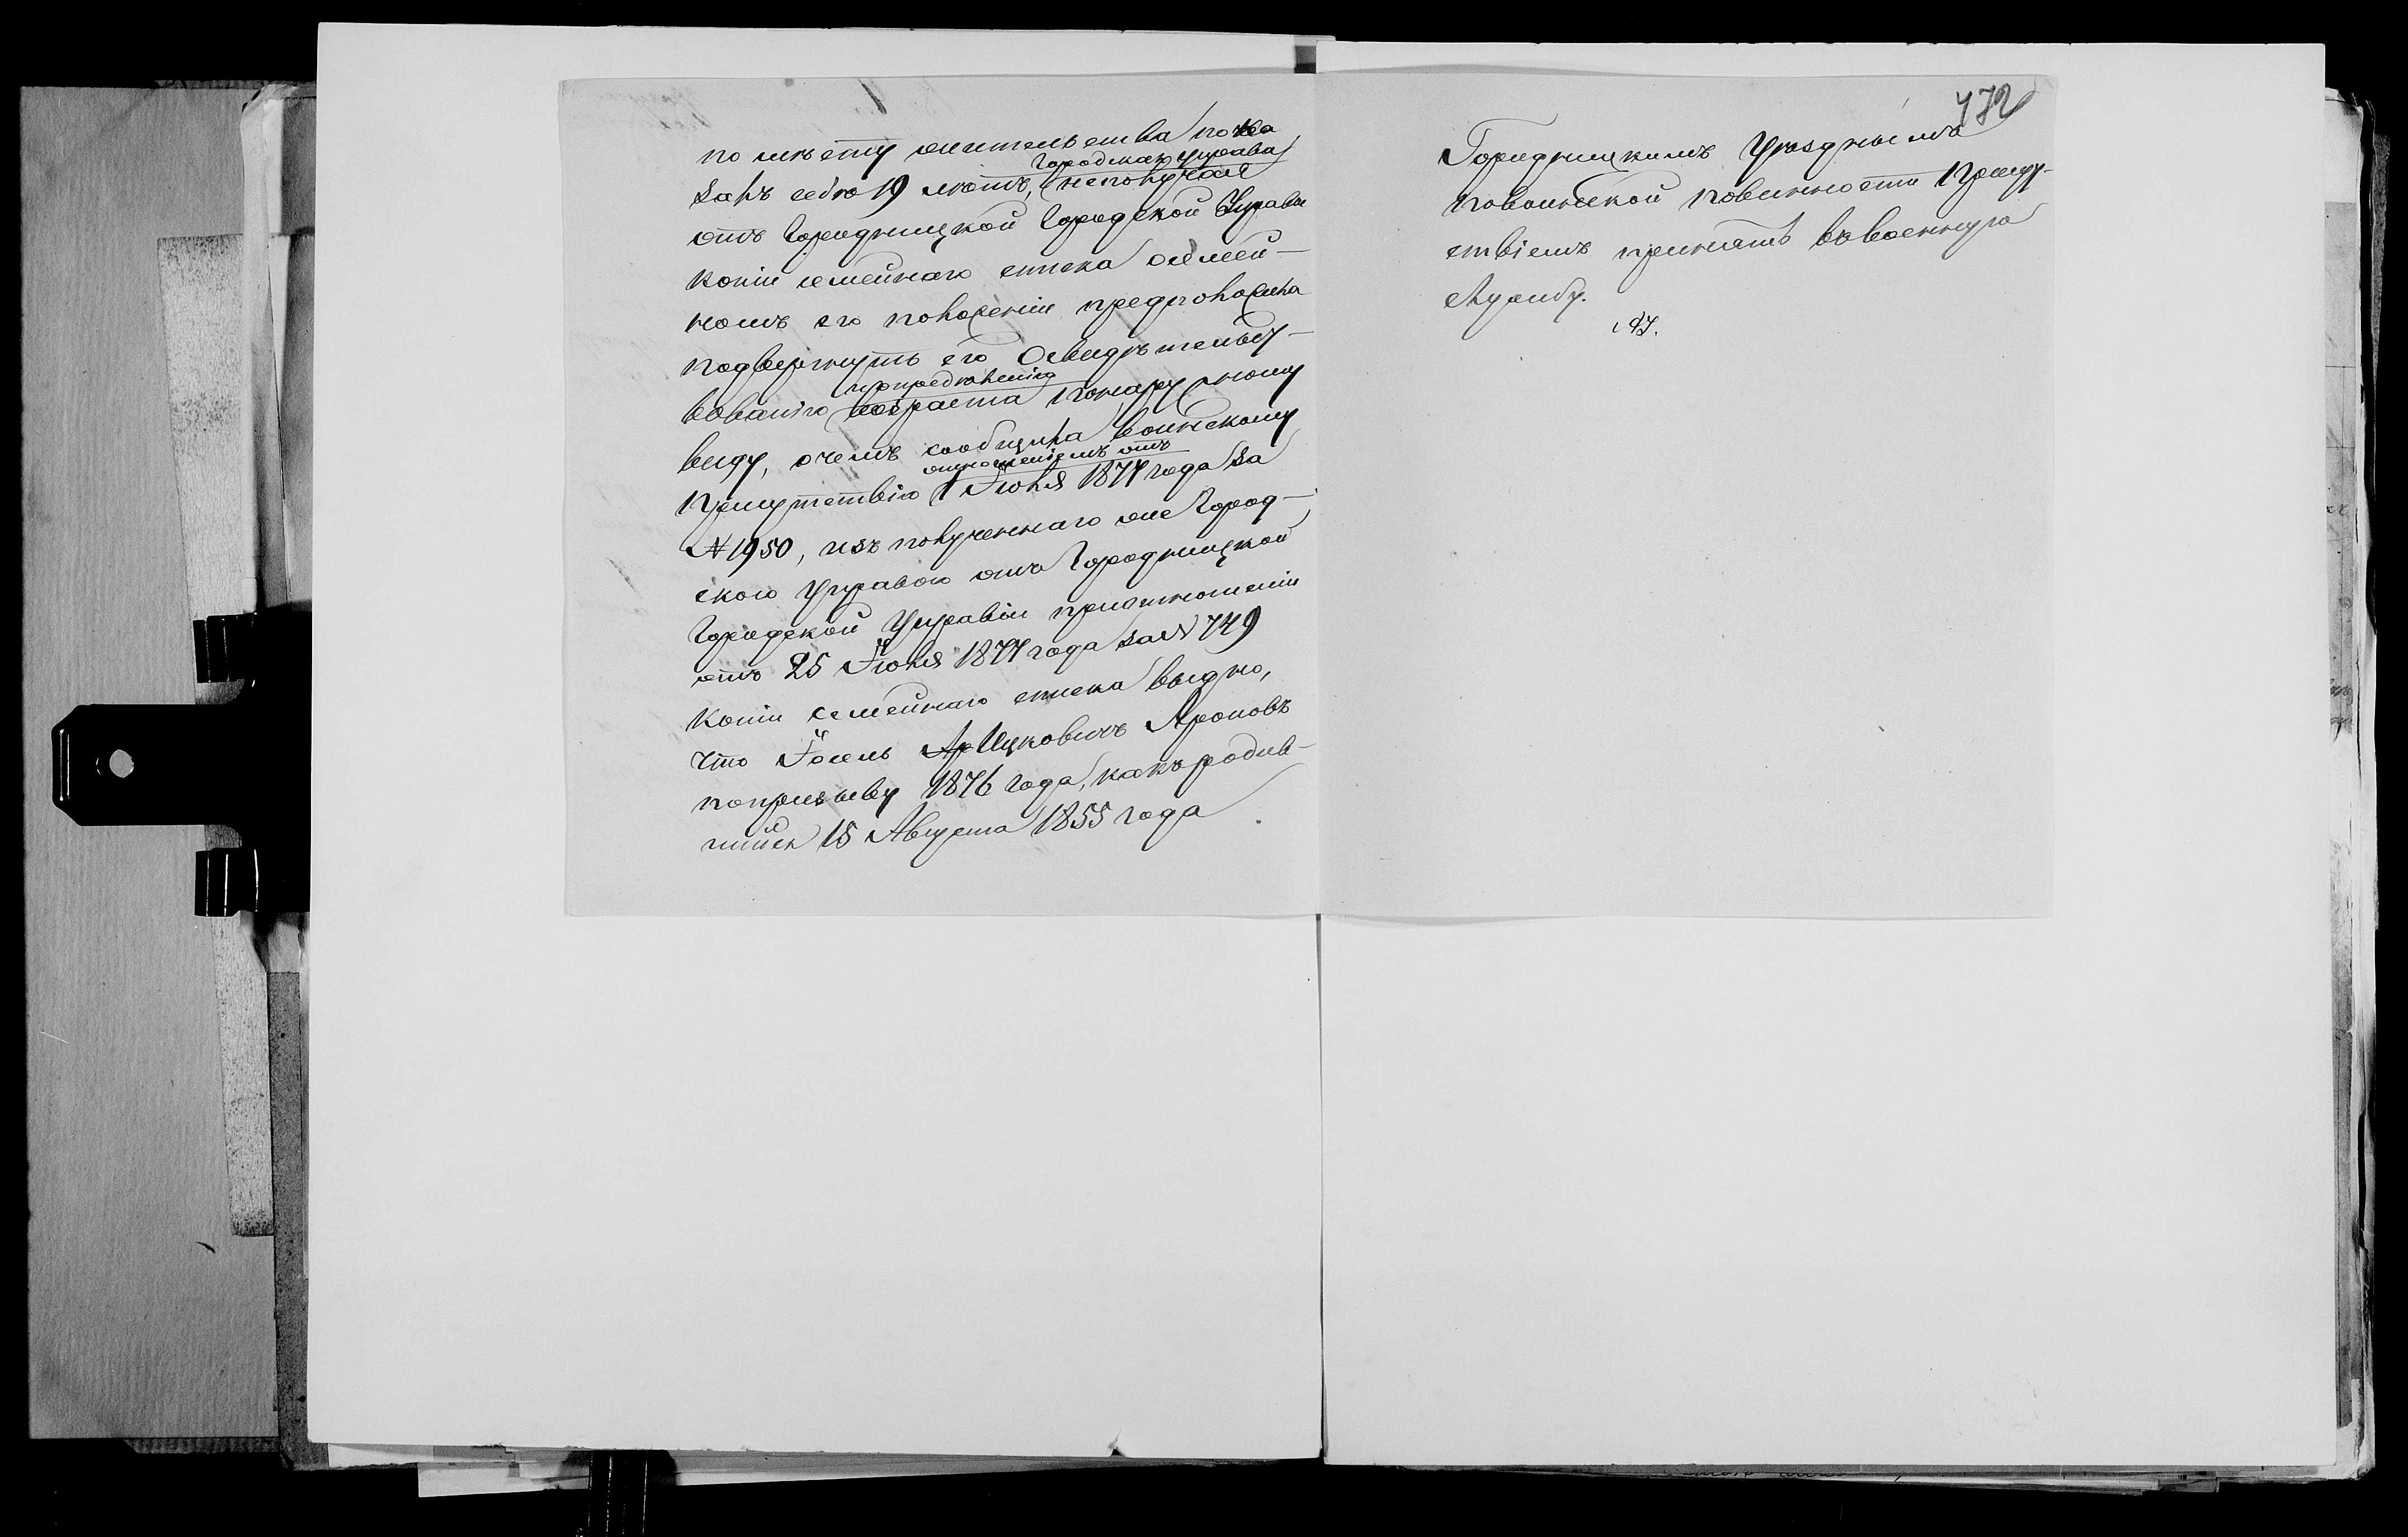 по мѣсту жительства пока
залъ себѣ 19 лѣтъ, Городская управа неполучая
отъ Городницкой Городской Управы
копіи семейнаго списка о семей-
номъ его положеніи предположила
подвергнуть его Освидѣтельст-
вованію возраста по наружному
виду, о чемъ сообщила воинскому
Присутствію отношеніемъ отъ 1 Іюля 1877 года за
№ 1950, изъ полученнаго же Город-
скою Управою отъ Городницкой
Городской Управы при отношеніи
отъ 25 Іюля 1877 года за № 749
копіи семейнаго списка видно,
что Іосель Ар Ицковичъ Ароновъ
по призыву 1876 года, какъ родив-
шійся 15 Августа 1855 года
472
Городницкимъ Уѣзднымъ
по воинской повинности Присут-
ствіемъ принятъ въ военную
службу.